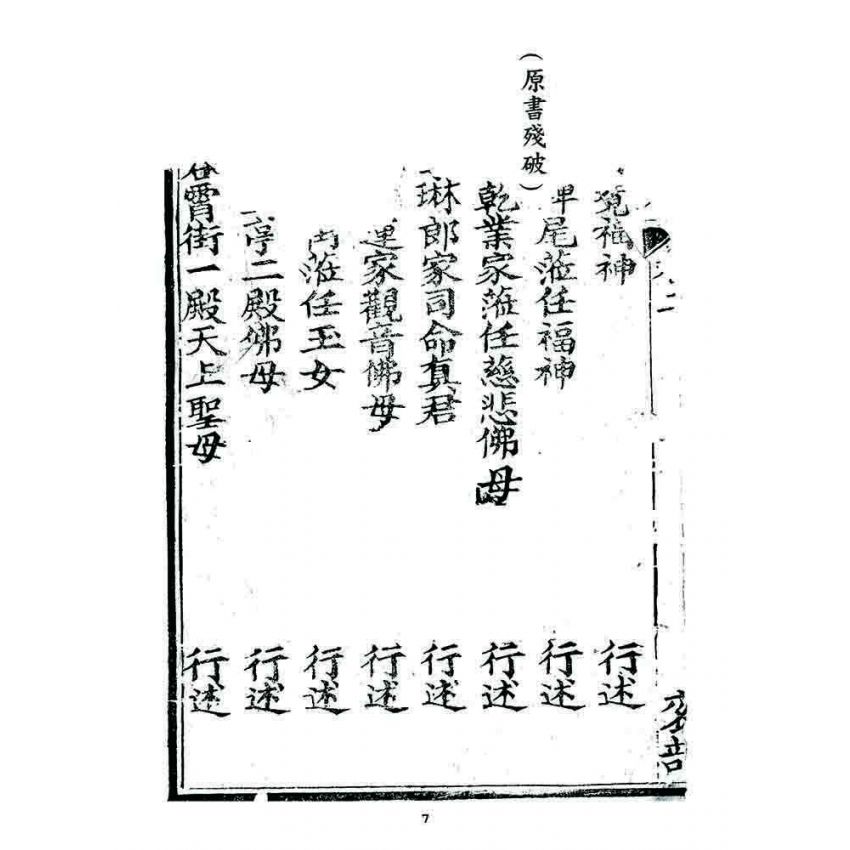 （原書殘破）
福神 行述
尾蒞任福神 行述
乾業家蒞任慈悲佛母 行述
琳郎家司命真君 行述
家觀音佛母 行述
蒞任玉女 行述
亭二殿佛母 行述
霄街一殿天上聖母 行述
7